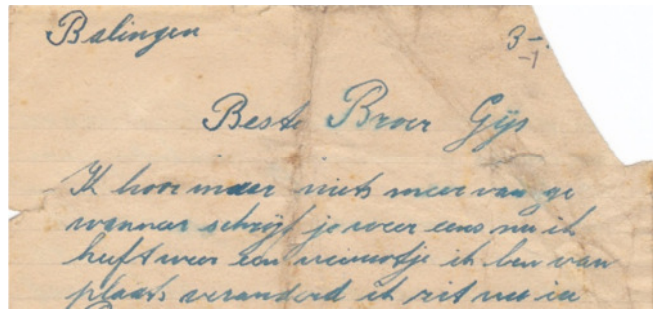 Balingen
3-
-1
Beste Broer Gijs
Ik hoor maar niets meer van ge
wanneer schrijf je weer eens nu ik
heeft weer een nieuwtje ik ben van
plaats veranderd ik zit nu in